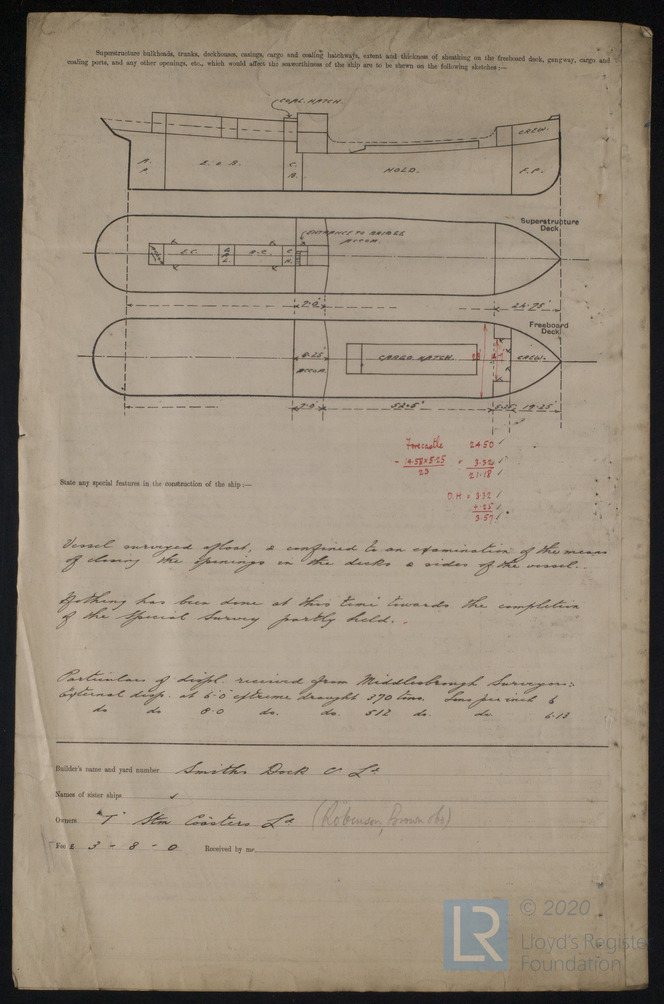 Superstructure bulkheads, trunks, deckhouses, casings, cargo and coaling hatchways, extent and thickness of sheathing on the freeboard deck, gangway, cargo and
coaling ports, and any other openings, etc., which would affect the seaworthiness of the ship are to be shewn on the following sketches:—
COAL HATCH.
CREW.
A.P.
E. & B.
C.B.
HOLD.
F.P.
Superstructure
Deck
ENTRANCE TO BRIDGE
ACCOM.
E.C.
B.C.
7.0'
24.75'
Freeboard
Deck
8.25'
ACCOM.
CARGO HATCH.
CREW.
7.0'
52.5'
5.25'
19.25'
Forecastle 24.50 ✓
- 14.58 x 5.25 = 3.32 ✓
23 21.18 ✓
D.H = 3.32 ✓
+.25 ✓
3.57 ✓
State any special features in the construction of the ship:—
Vessel surveyed afloat, & confined to an examination of the means
of closing the openings in the decks & sides of the vessel.
Nothing has been done at this time towards the completion
of the Special Survey partly held.
Particulars of displ. received from Middlesbrough Surveyors:
External disp. at 6'0" extreme draught 370 tons. Tons per inch 6
do do 8.0 do. do. 512 do. do 6.13
Builder's name and yard number Smiths Dock Co Ld
Names of sister ships
Owners "T" Stm Coasters Ld (Robinson, Brown
Fee £ 3 - 8 - 0 Received by me
LR
© 2020
Lloyd's Register
Foundation